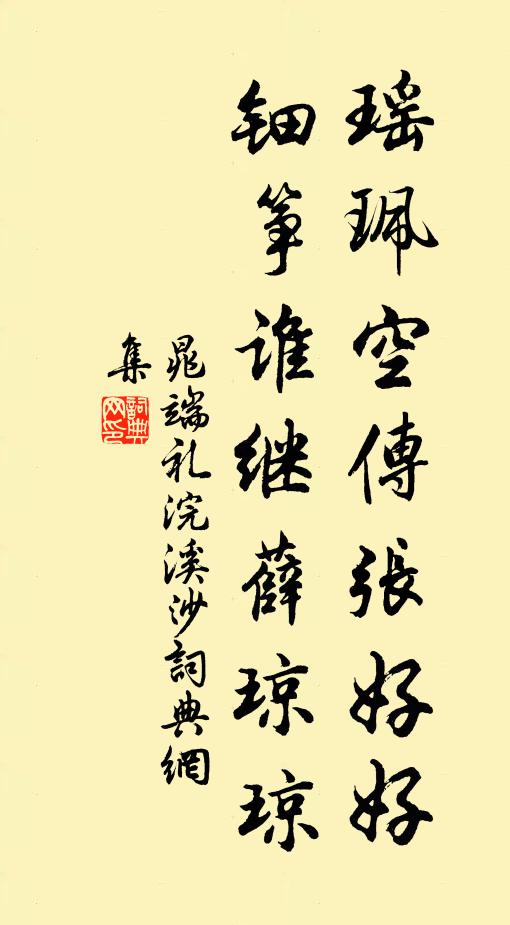 瑶珮空傳張好好
钿筝谁继薛琼琼
晁端礼浣溪沙詞典網
集
詞典網印